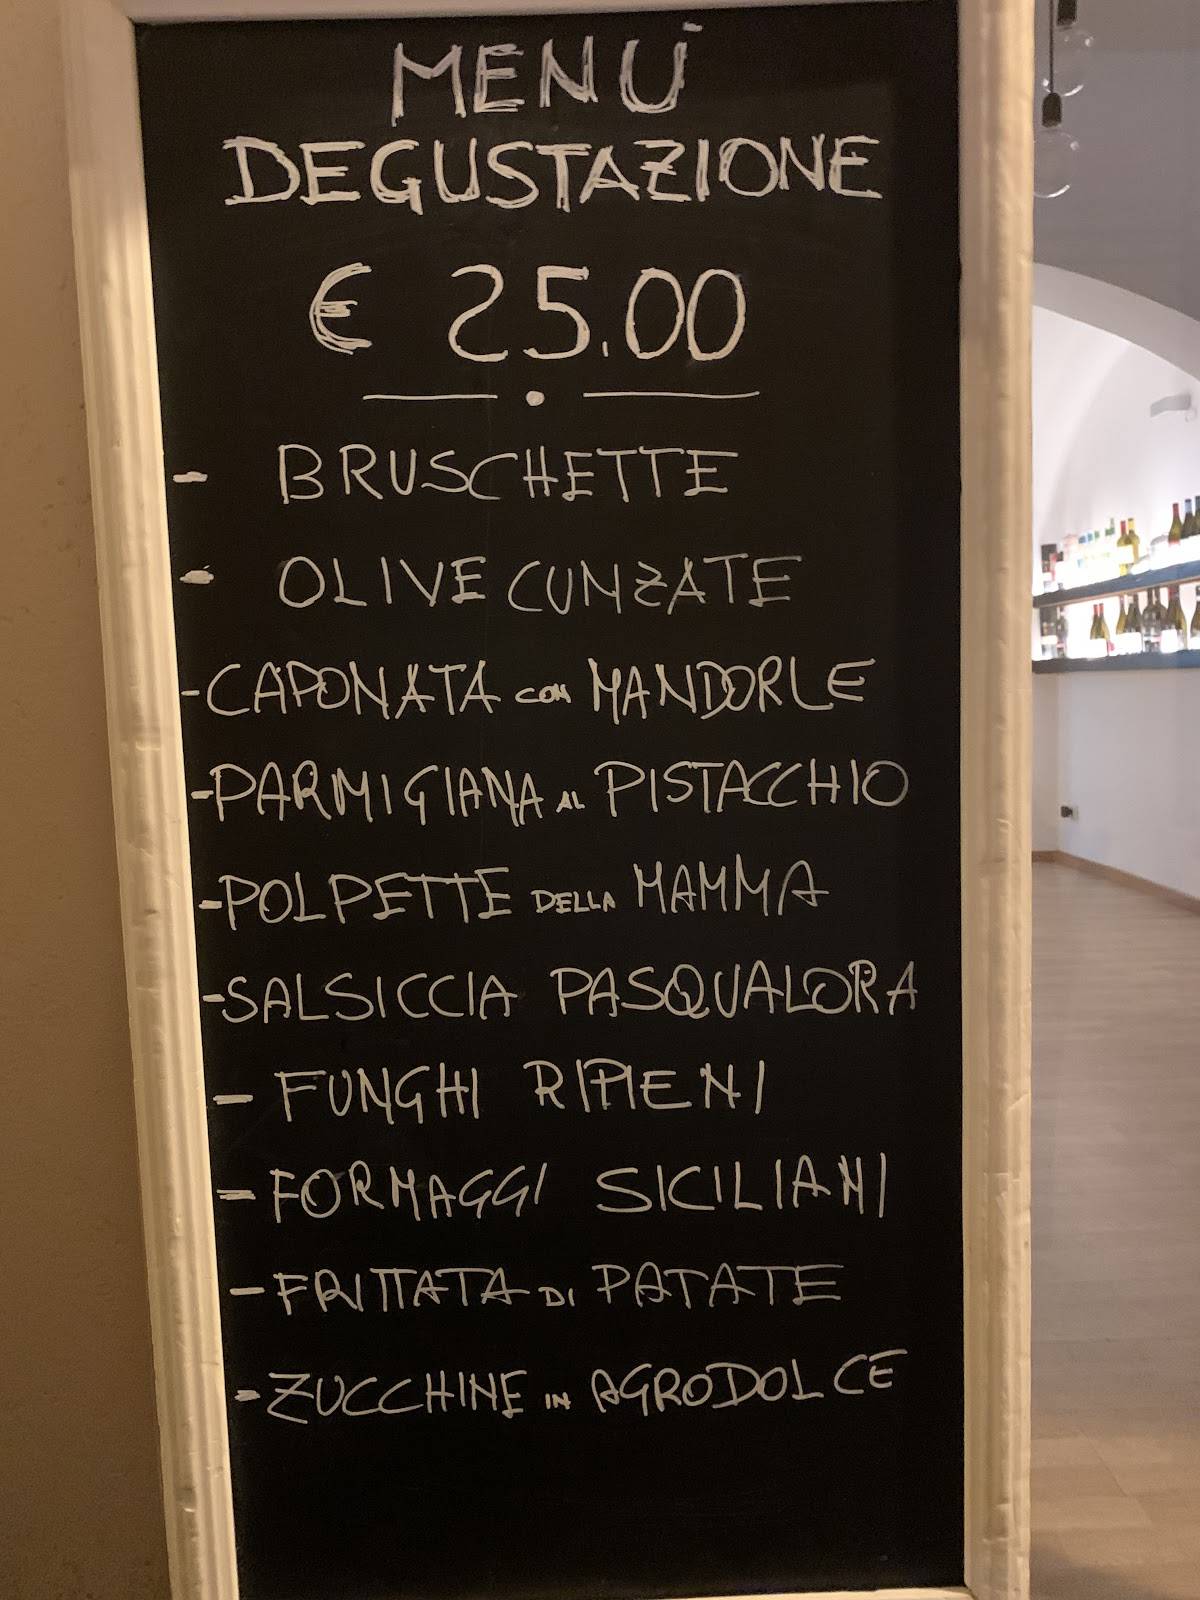 MENÙ
DEGUSTAZIONE
€ 25.00
- BRUSCHETTE
- OLIVE CUNZATE
- CAPONATA CON MANDORLE
- PARMIGIANA AL PISTACCHIO
- POLPETTE DELLA MAMMA
- SALSICCIA PASQUALORA
- FUNGHI RIPIENI
- FORMAGGI SICILIANI
- FRITTATA DI PATATE
- ZUCCHINE IN AGRODOLCE